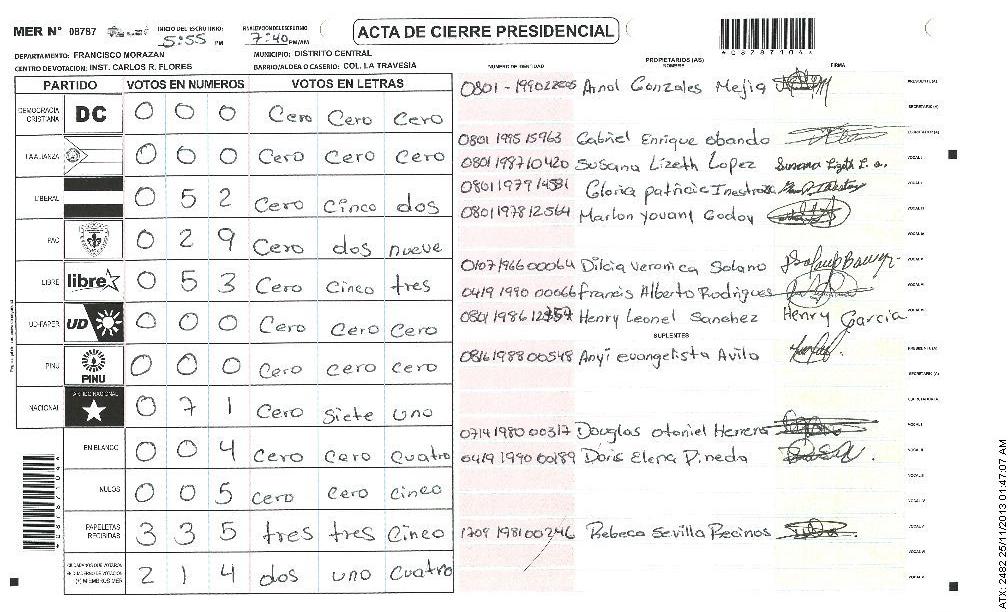 MER N° 08787 INICIO DEL ESCRUTINIO: 5:55 PM FINALIZACION DEL ESCRUTINIO 7:40 PM/AM ACTA DE CIERRE PRESIDENCIAL
DEPARTAMENTO: FRANCISCO MORAZAN MUNICIPIO: DISTRITO CENTRAL
CENTRO DE VOTACION: INST. CARLOS R. FLORES BARRIO/ALDEA O CASERIO: COL. LA TRAVESIA
PARTIDO VOTOS EN NUMEROS VOTOS EN LETRAS
DEMOCRACIA CRISTIANA DC 0 0 0 Cero Cero Cero
FAALIANZA 0 0 0 Cero Cero Cero
LIBERAL 0 5 2 Cero Cinco dos
PAC 0 2 9 Cero dos nueve
LIBRE libre 0 5 3 Cero Cinco tres
UD-FAPER UD 0 0 0 Cero Cero Cero
PINU PINU 0 0 0 Cero Cero Cero
NACIONAL PARTIDO NACIONAL 0 7 1 Cero Siete uno
EN BLANCO 0 0 4 Cero Cero Cuatro
NULOS 0 0 5 Cero Cero Cinco
PAPELETAS RECIBIDAS 3 3 5 tres tres Cinco
CIUDADANOS QUE VOTARON 2 1 4 dos uno Cuatro
(+) MIEMBROS MER
NUMERO DE IDENTIDAD PROPIETARIOS (AS) NOMBRE FIRMA
0801-1990 22805 Arnol Gonzales Mejia
PRESIDENTE (A)
SECRETARIO (A)
0801 1995 15963 Gabriel Enrique obando
0801 1987 10420 Susana Lizeth Lopez Susana Lizeth L. O.
VOCAL I
0801 1979 14531 Gloria patricia Inestroza
0801 1978 12564 Marlon Yovany Godoy
0107 1966 00064 Dilcia Veronica Solano
0419 1990 00066 Francis Alberto Rodrigues
0801 1986 Henry Leonel Sanchez Henry Garcia
SUPLENTES
0816 1988 00548 Anyi evangelista Avila
PRESIDENTE (A)
SECRETARIO (A)
0714 1980 00317 Douglas otoniel Herrera
0419 1990 00189 Doris Elena Pineda
1709 1981 00246 Rebeca Sevilla Recinos
ATX: 2482 25/11/2013 01:47:07 AM